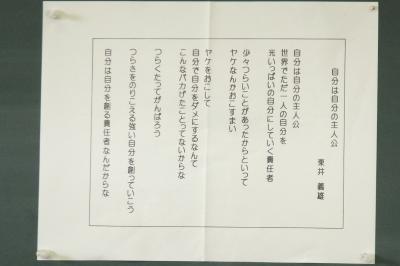 自分は自分の主人公
東井 義雄
自分は自分の主人公
世界でただ一人の自分を
光いっぱいの自分にしていく責任者
少々つらいことがあったからといって
ヤケなんかおこすまい
ヤケをおこして
自分で自分をダメにするなんて
こんなバカげたことってないからな
つらくたってがんばろう
つらさをのりこえる強い自分を創っていこう
自分は自分を創る責任者なんだからな